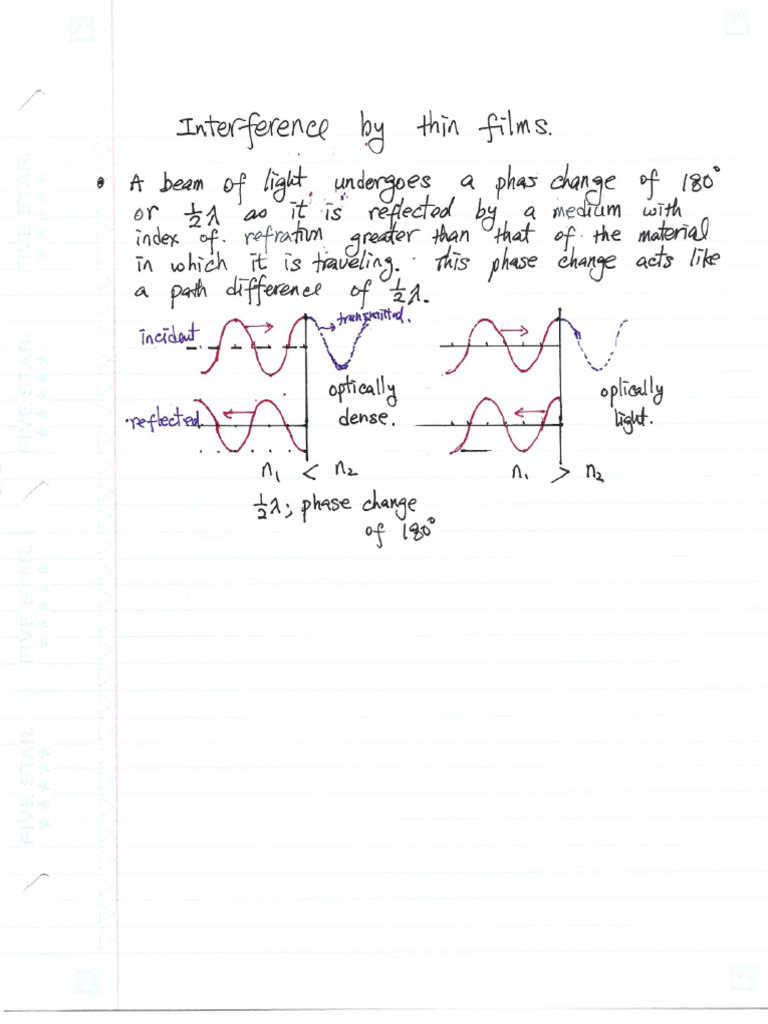 Interference by thin films.
• A beam of light undergoes a phas change of 180°
or ½λ as it is reflected by a medium with
index of refration greater than that of the material
in which it is traveling. This phase change acts like
a path difference of ½λ.
incident
transmitted.
optically
dense.
reflected
n₁ < n₂
½λ; phase change
of 180°
optically
light.
n₁ > n₂
FIVE STAR
FIVE STAR
FIVE STAR
FIVE STAR